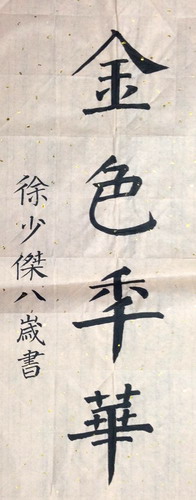 金色秊華
徐少傑八歲書